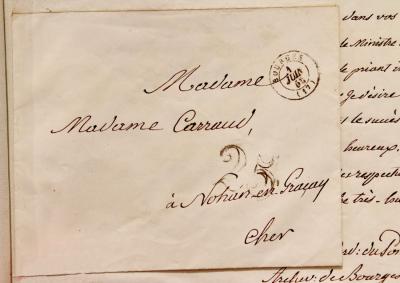 Madame
Madame Carraud,
à Nohan-en-Graçay
Cher
BOURGES
JUIN
(17)
25
dans vos
le Ministre
le priant
Je désire
le succès
heureux,
respect
très-hu
Archev: de Bourges